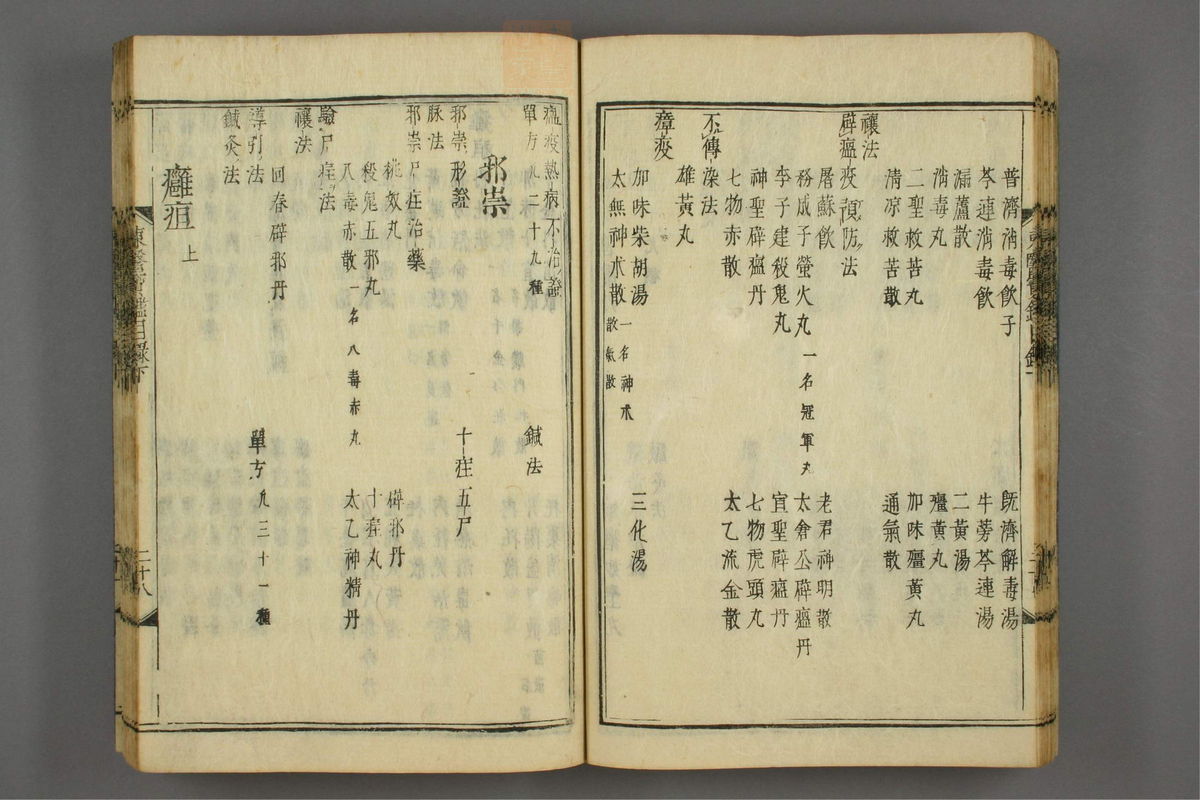 普濟消毒飮子
旣濟解毒湯
芩連消毒飮
牛蒡芩連湯
漏蘆散
二黃湯
消毒丸
殭黃丸
二聖救苦丸
加味殭黃丸
淸凉救苦散
通氣散
禳法
辟瘟疫預防法
屠蘇飮
老君神明散
粉成子螢火丸 一名冠軍丸
太倉公辟瘟丹
李子建殺鬼丸
宣聖辟瘟丹
神聖辟瘟丹
七物虎頭丸
七物赤散
太乙流金散
不傳染法
雄黃丸
瘴疫
加味柴胡湯
三化湯
太無神朮散 一名神朮散氣散
瘟疫熱病不治證
鍼法
單方凡二十九種
邪祟
邪祟形證
十疰五尸
脉法
邪祟尸疰治藥
桃奴丸
辟邪丹
殺鬼五邪丸
十疰丸
八毒赤散 一名八毒赤丸
太乙神精丹
驗尸疰法
禳法
回春辟邪丹
導引法
單方凡三十一種
鍼灸法
癰疽 上
東醫寶鑑目錄下
二十八